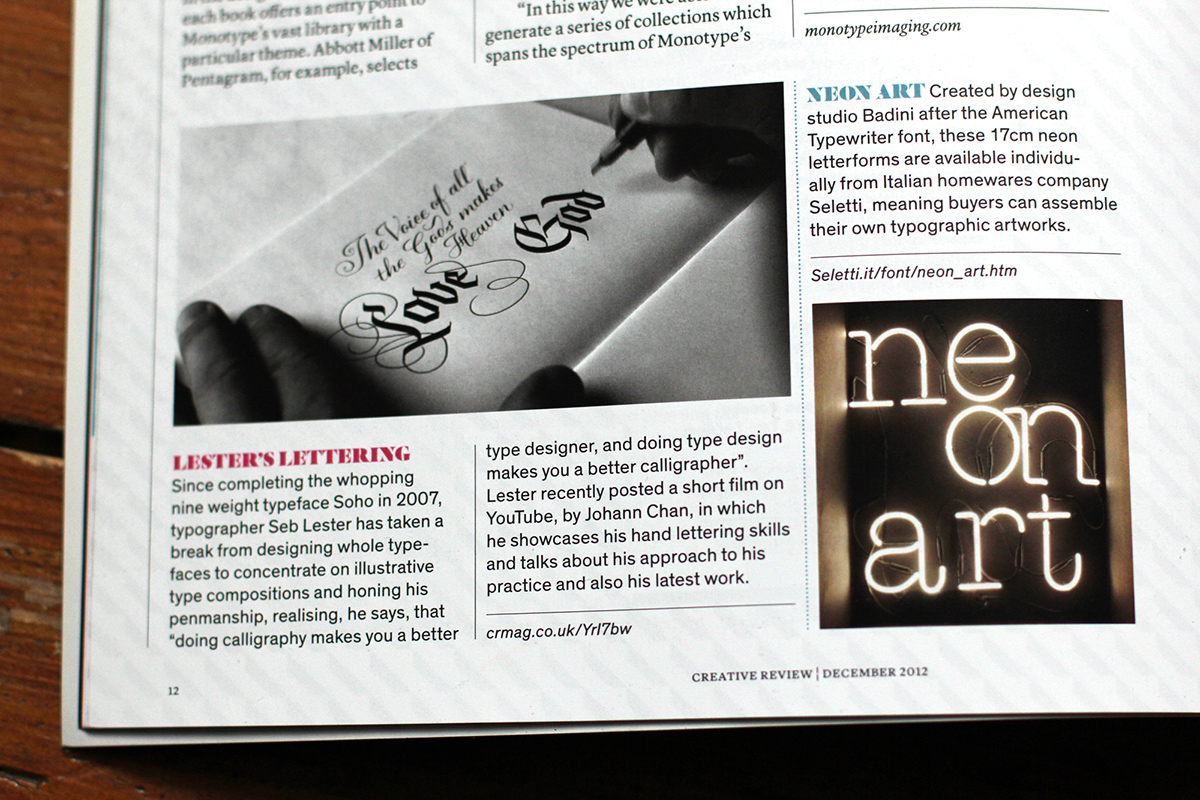 each book offers an entry point to
Monotype's vast library with a
particular theme. Abbott Miller of
Pentagram, for example, selects
"In this way we were
generate a series of collections which
spans the spectrum of Monotype's
monotypeimaging.com
The Voice of all
the Gods makes
Heaven
Love
God
LESTER'S LETTERING
Since completing the whopping
nine weight typeface Soho in 2007,
typographer Seb Lester has taken a
break from designing whole type-
faces to concentrate on illustrative
type compositions and honing his
penmanship, realising, he says, that
"doing calligraphy makes you a better
type designer, and doing type design
makes you a better calligrapher".
Lester recently posted a short film on
YouTube, by Johann Chan, in which
he showcases his hand lettering skills
and talks about his approach to his
practice and also his latest work.
crmag.co.uk/YrI7bw
NEON ART Created by design
studio Badini after the American
Typewriter font, these 17cm neon
letterforms are available individu-
ally from Italian homewares company
Seletti, meaning buyers can assemble
their own typographic artworks.
Seletti.it/font/neon_art.htm
ne
on
art
12
CREATIVE REVIEW | DECEMBER 2012